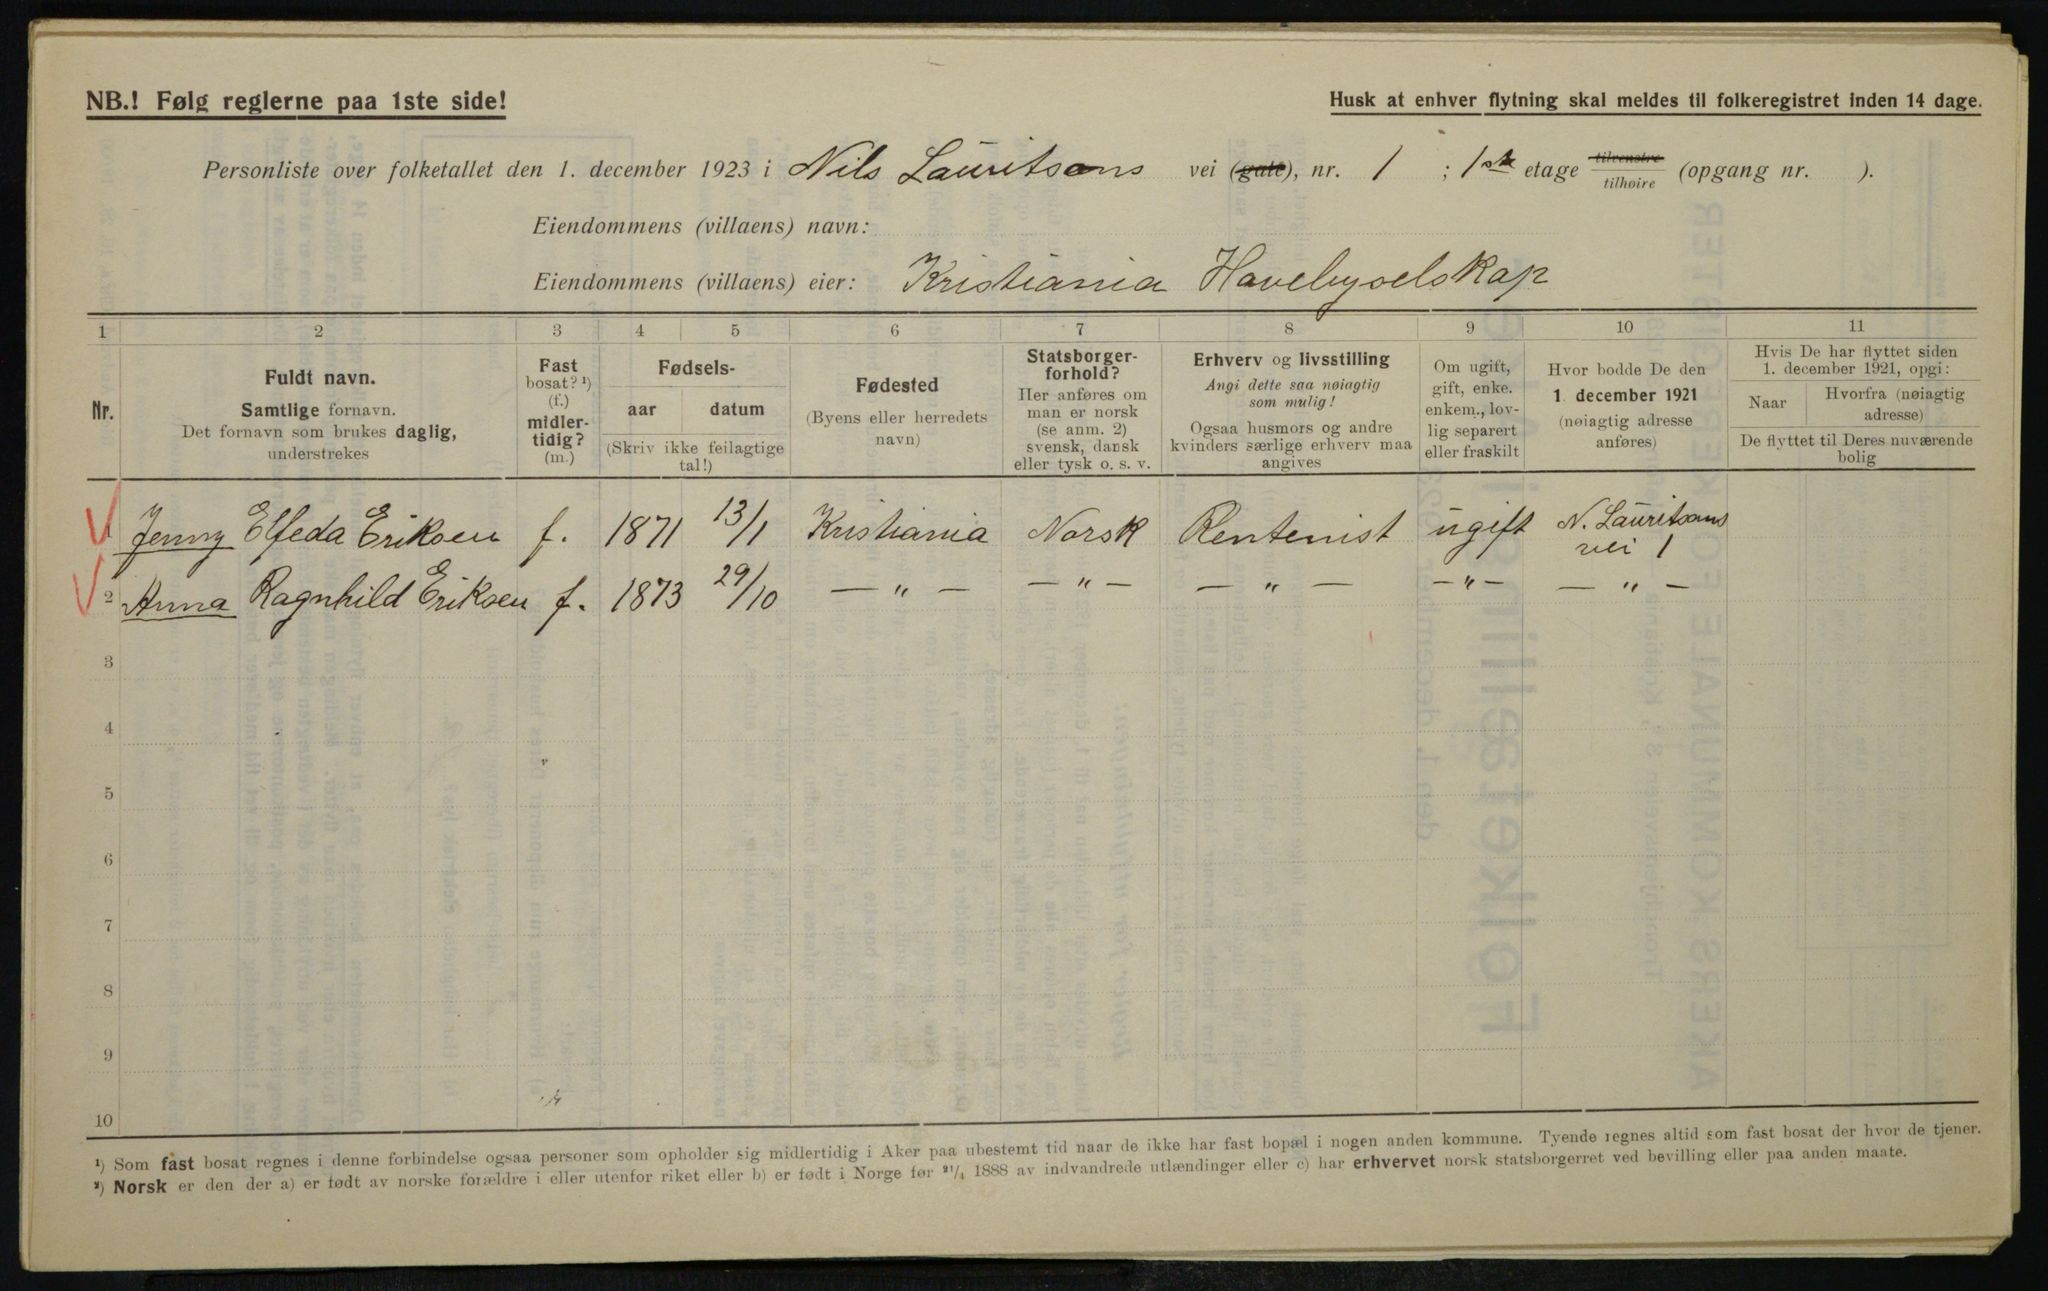 NB.! Følg reglerne paa 1ste side!
Husk at enhver flytning skal meldes til folkeregistret inden 14 dage.
Personliste over folketallet den 1. december 1923 i Nils Lauritsøns vei (gate), nr. 1 ; 1ste etage tilvenstre / tilhøire (opgang nr. ).
Eiendommens (villaens) navn:
Eiendommens (villaens) eier: Kristiania Havebyselskap
1 2 3 4 5 6 7 8 9 10 11
Nr.
Fuldt navn.
Samtlige fornavn.
Det fornavn som brukes daglig,
understrekes
Fast
bosat? ¹)
(f.)
midler-
tidig?
(m.)
Fødsels-
aar datum
(Skriv ikke feilagtige
tal!)
Fødested
(Byens eller herredets
navn)
Statsborger-
forhold?
Her anføres om
man er norsk
(se anm. 2)
svensk, dansk
eller tysk o. s. v.
Erhverv og livsstilling
Angi dette saa nøiagtig
som mulig!
Ogsaa husmors og andre
kvinders særlige erhverv maa
angives
Om ugift,
gift, enke.
enkem., lov-
lig separert
eller fraskilt
Hvor bodde De den
1 december 1921
(nøiagtig adresse
anføres)
Hvis De har flyttet siden
1. december 1921, opgi:
Naar
Hvorfra (nøiagtig
adresse)
De flyttet til Deres nuværende
bolig
1 Jenny Elfeda Eriksen f. 1871 13/1 Kristiania Norsk Rentenist ugift N. Lauritsøns
vei 1
2 Anna Ragnhild Eriksen f. 1873 29/10 — „ — — „ — — „ — — „ — — „ —
3
4
5
6
7
8
9
10
¹) Som fast bosat regnes i denne forbindelse ogsaa personer som opholder sig midlertidig i Aker paa ubestemt tid naar de ikke har fast bopæl i nogen anden kommune. Tyende regnes altid som fast bosat der hvor de tjener.
²) Norsk er den der a) er født av norske forældre i eller utenfor riket eller b) er født i Norge før ²¹/₄ 1888 av indvandrede utlændinger eller c) har erhvervet norsk statsborgerret ved bevilling eller paa anden maate.